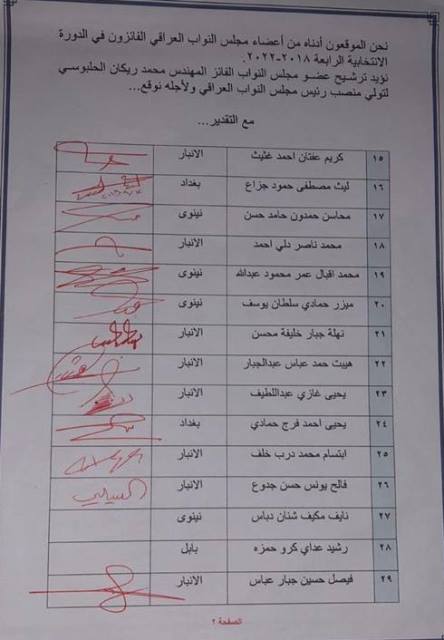 نحن الموقعون أدناه من أعضاء مجلس النواب العراقي الفائزون في الدورة
الانتخابية الرابعة ٢٠١٨-٢٠٢٢.
نؤيد ترشيح عضو مجلس النواب الفائز المهندس محمد ريكان الحلبوسي
لتولي منصب رئيس مجلس النواب العراقي ولأجله نوقع...
مع التقدير...
١٥ كريم عفتان احمد غثيث الانبار
١٦ ليث مصطفى حمود جزاع بغداد
١٧ محاسن حمدون حامد حسن نينوى
١٨ محمد ناصر دلي احمد الانبار
١٩ محمد اقبال عمر محمود عبدالله نينوى
٢٠ ميزر حمادي سلطان يوسف نينوى
٢١ نهلة جبار خليفة محسن الانبار
٢٢ هيبت حمد عباس عبدالجبار الانبار
٢٣ يحيى غازي عبداللطيف الانبار
٢٤ يحيى احمد فرج حمادي بغداد
٢٥ ابتسام محمد درب خلف الانبار
٢٦ فالح يونس حسن جدوع الانبار
٢٧ نايف مكيف شنان دباس نينوى
٢٨ رشيد عداي كرو حمزه بابل
٢٩ فيصل حسين جبار عباس الانبار
الصفحة ٢